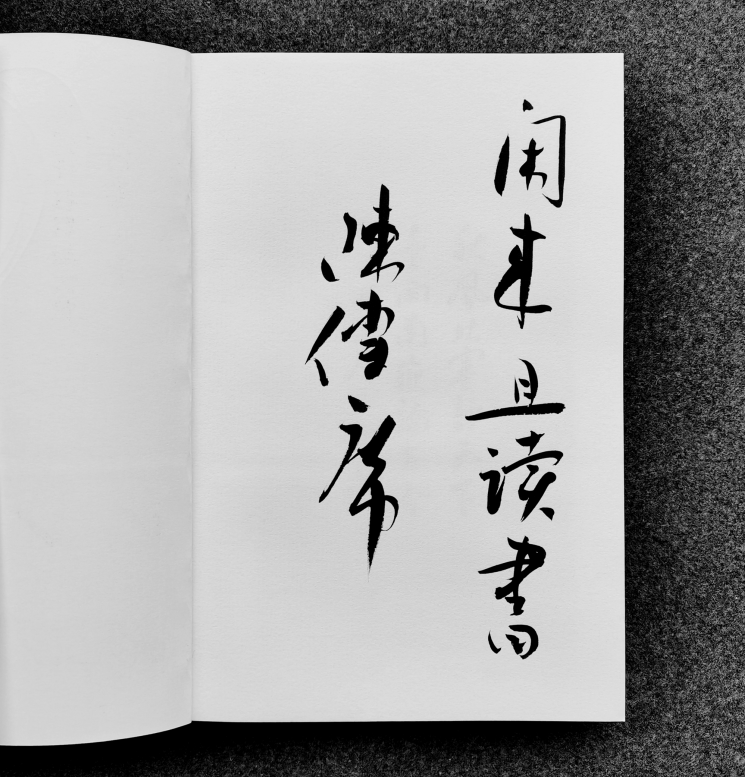 闲来且读書
陳傳席